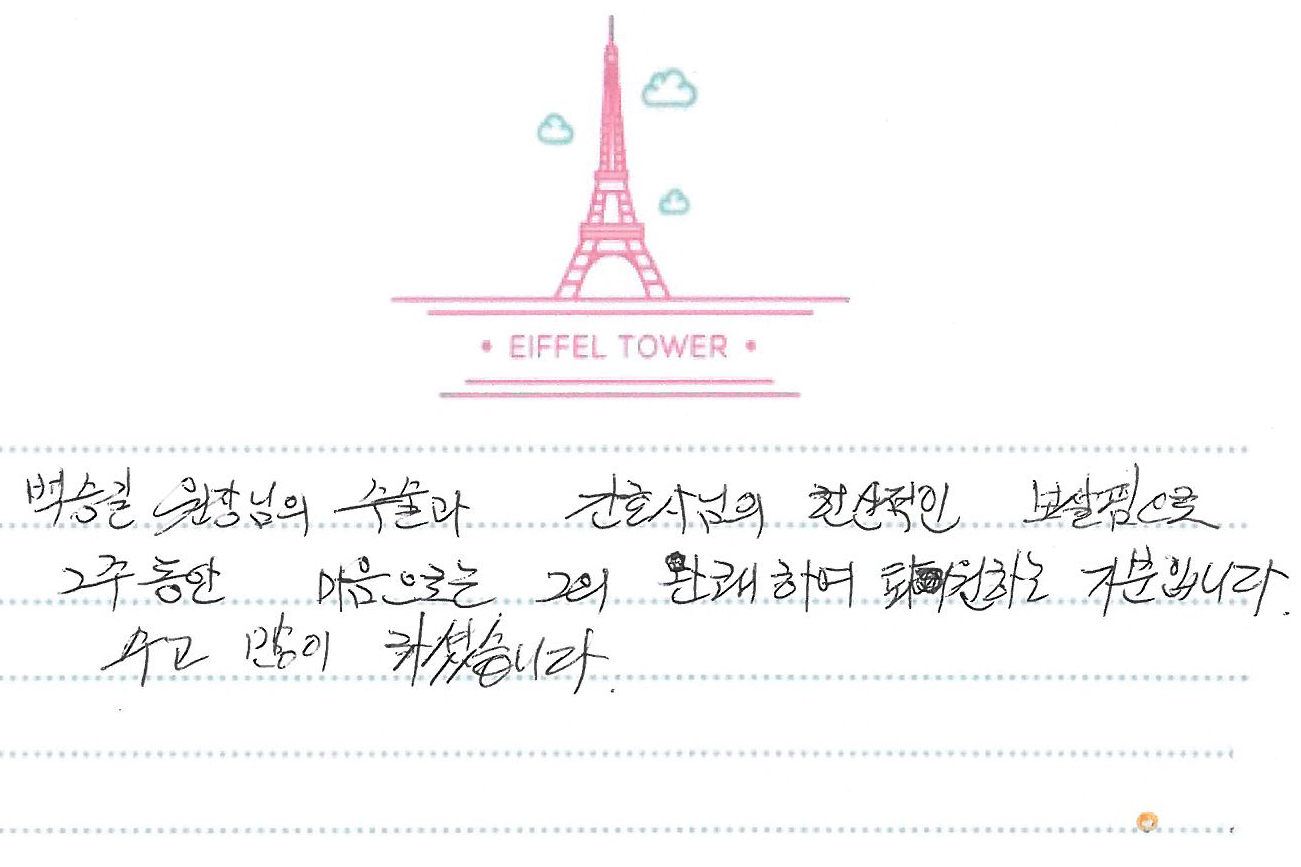 EIFFEL TOWER
백승길 원장님의 수술과 간호사님의 헌신적인 보살핌으로
2주 동안 마음으로는 거의 완쾌하여 퇴원하는 기분입니다.
수고 많이 하셨습니다.